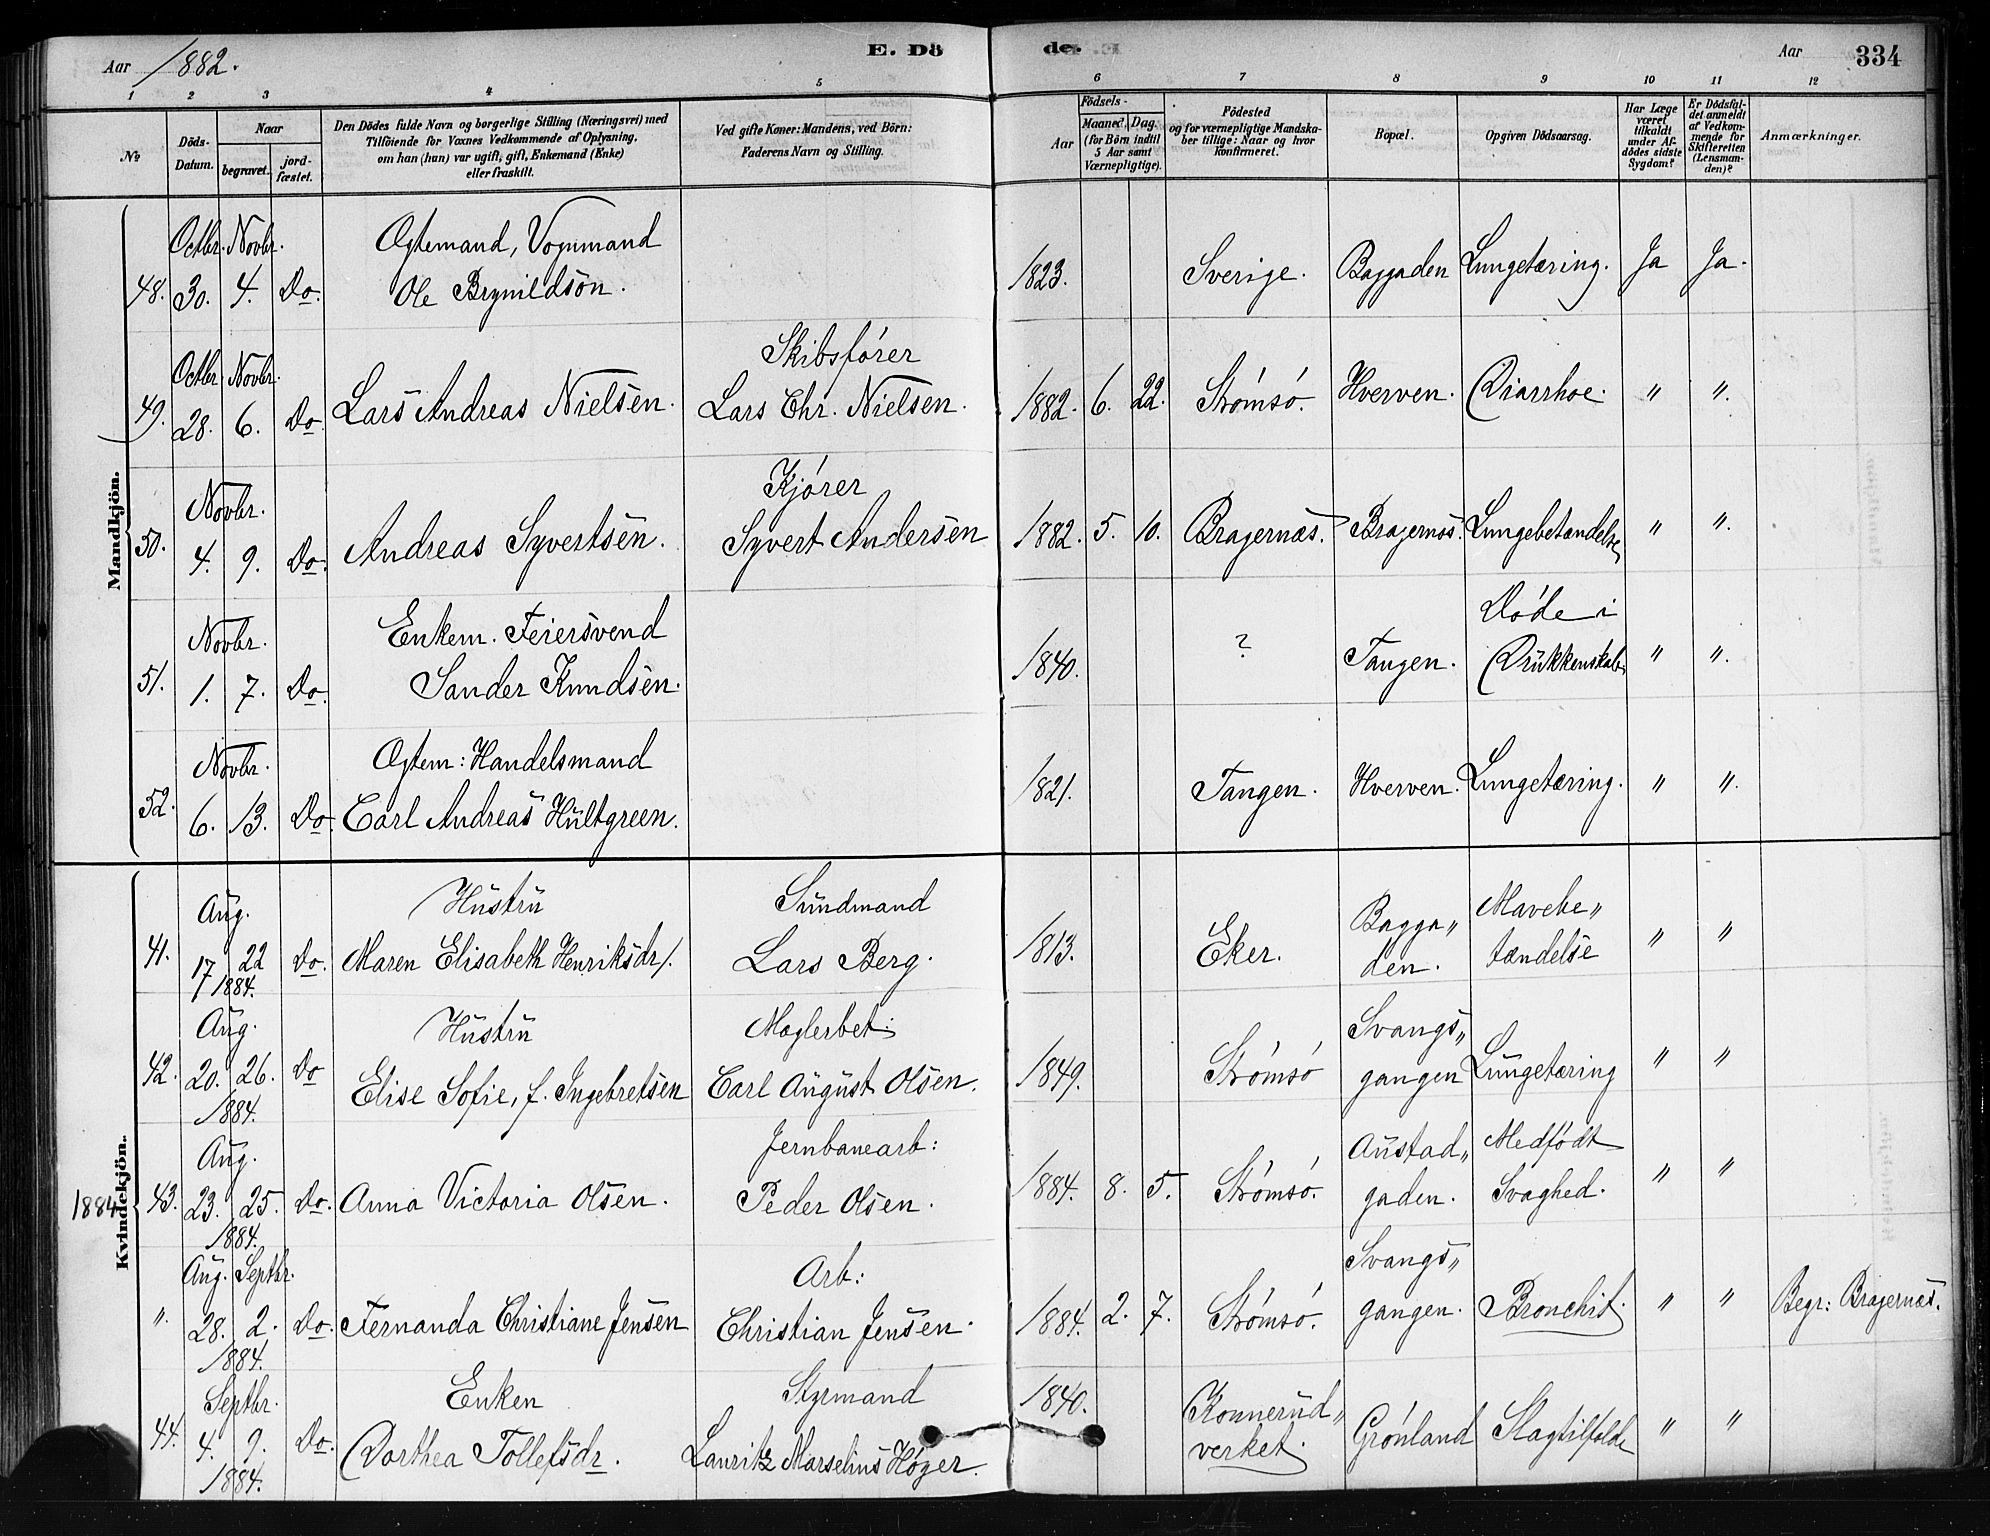 Aar 1882. E. Dö de. Aar 334
1 2 3 4 5 6 7 8 9 10 11 12
№
Döds-Datum.
Naar
begravet. jord-fæstet.
Den Dödes fulde Navn og borgerlige Stilling (Næringsvei) med
Tilföiende for Voxnes Vedkommende af Oplysning,
om han (hun) var ugift, gift, Enkemand (Enke)
eller fraskilt.
Ved gifte Koner: Mandens, ved Börn:
Faderens Navn og Stilling.
Födsels-
Aar Maaned. Dag.
(for Börn indtil
5 Aar samt
Værnepligtige).
Födested
og for værnepligtige Mandska-
ber tillige: Naar og hvor
konfirmeret.
Bopæl.
Opgiven Dödsaarsag.
Har Læge
været
tilkaldt
under Af-
dödes sidste
Sygdom?
Er Dödsfal-
det anmeldt
af Vedkom-
mende for
Skifteretten
(Lensman-
den)?
Anmærkninger.
Mandkjön.
Octbr. Novbr. Ægtemand, Vognmand
48. 30. 4. Do. Ole Brynildsen. 1823. Sverige. Baggaden Lungetæring. Ja Ja.
Octbr. Novbr. Skibsfører
49. 28. 6. Do Lars Andreas Nielsen. Lars Chr. Nielsen. 1882. 6. 22. Strømsø. Hverven. Diarrhoe. " ".
Novbr. Kjører
50. 4. 9. Do. Andreas Syvertsen. Syvert Andersen 1882. 5. 10. Bragernæs. Bragernæs. Lungebetændelse " ".
Novbr. Enkem. Feiersvend Døde i
51. 1. 7. Do. Sander Knudsen. 1840. ? Tangen. Drukkenskab " ".
Novbr. Ægtem: Handelsmand
52. 6. 13. Do. Carl Andreas Hultgreen. 1821. Tangen. Hverven. Lungetæring. " ".
Kvindekjön.
Aug. Hustru Sundmand Bagga" Mavebe"
41. 17 22 Do. Maren Elisabeth Henriksdr/. Lars Berg. 1813. Eker. den. tændelse " "
1884.
Aug. Hustru Møglerbet: Svangs"
42. 20. 26. Do Elise Sofie, f. Ingebretsen Carl August Olsen. 1849. Strømsø gangen Lungetæring " "
1884.
Aug. Jernbanearb: Austad" Medfødt
1884 43. 23. 25. Do. Anna Victoria Olsen. Peder Olsen. 1884. 8. 5. Strømsø. gaden. Svaghed. " "
1884.
Aug. Septbr. Arb: Svangs"
". 28. 2. Do. Fernanda Christiane Jensen Christian Jensen. 1884. 2. 7. Strømsø. gangen. Bronchit. " " Begr: Bragernæs.
1884.
Septbr. Enken Styrmand 1840. Konnerud"
44. 4. 9. Do. Dorthea Tollefsdr. Lauritz Marselius Høyer. verket. Grønland Slagtilfelde " "
1884.